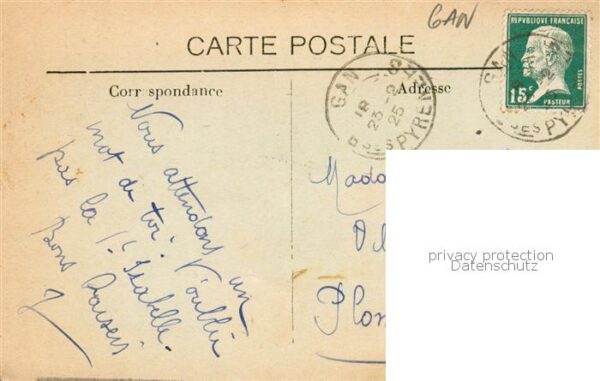 GAN
CARTE POSTALE
Corr spondance
Adresse
RÉPUBLIQUE FRANÇAISE
POSTES
15c
PASTEUR
GAN
18
23 - 9
25
BSES PYRÉN
GAN
BSES PYRÉ
Nous attendons un
mot de toi. N'oublie
pas la St Isabelle.
Bons Baisers
J
Mada
Plon
privacy protection
Datenschutz